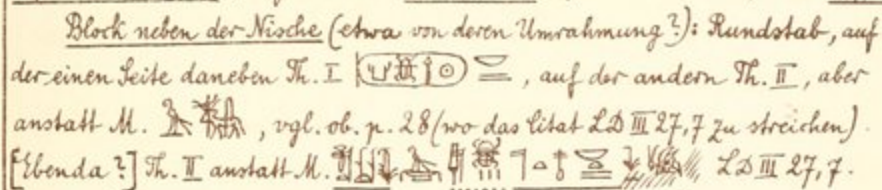 Block neben der Nische (etwa von deren Umrahmung?): Rundstab, auf
der einen Seite daneben Th. I , auf der andern Th. II, aber
anstatt M. , vgl. ob. p. 28 (wo das Citat LD III 27,7 zu streichen).
[Ebenda?] Th. II anstatt M. LD III 27,7.